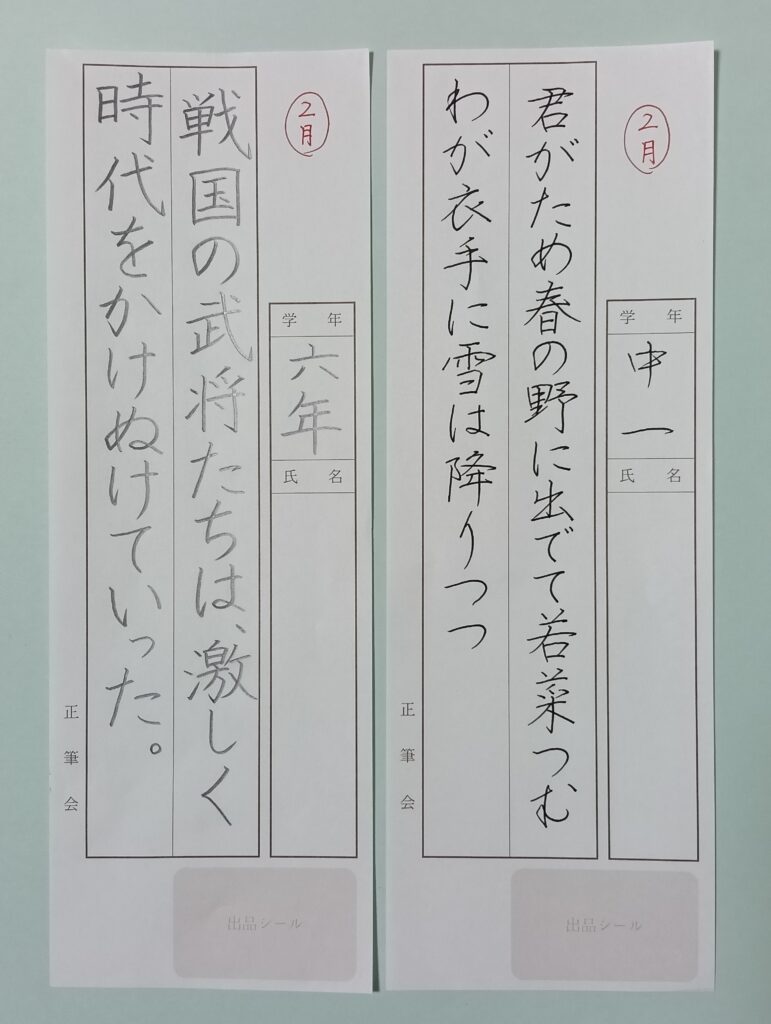 ２月
君がため春の野に出でて若菜つむ
わが衣手に雪は降りつつ
学年
中一
氏名
正筆会
出品シール
２月
戦国の武将たちは、激しく
時代をかけぬけていった。
学年
六年
氏名
正筆会
出品シール